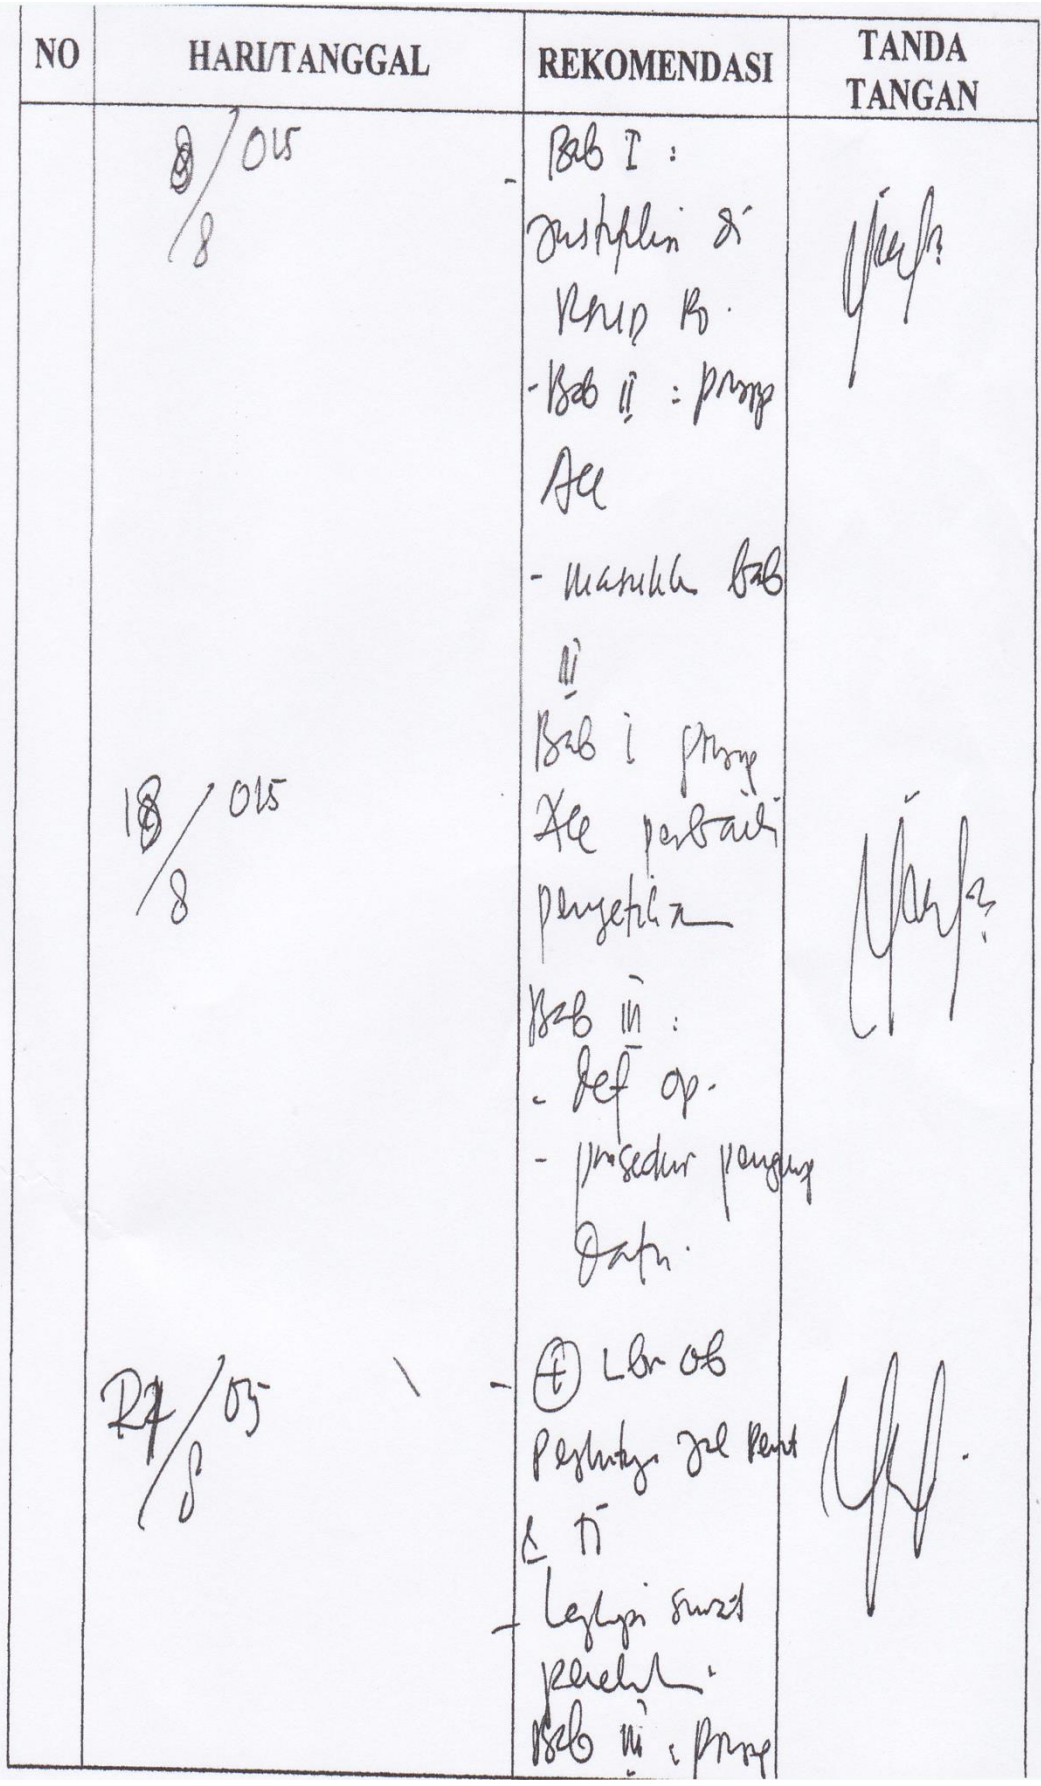 NO HARI/TANGGAL REKOMENDASI TANDA TANGAN
8/8 015
- Bab I :
di
- Bab II : prinsip
Acc
- masukkan bab
III
18/8 015
Bab I prinsip
Acc perbaiki
pengetikan
Bab III :
- Def op.
- prosedur pengump
Data.
27/8 015
- + Lbr ob
- Lengkapi surat
penelitian
Bab III : prinsip